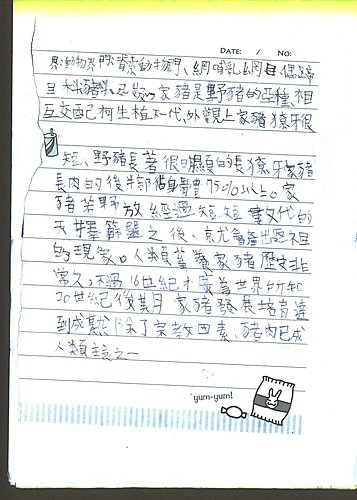 DATE: / NO:
界:動物界 門:脊索動物門、綱哺乳綱目 偶蹄
目 科豬科 家豬是野豬的亞種、相
互交配可生植下一代、外觀上家豬獠牙很
短、野豬長著很明顯的長獠牙家豬
長肉的後半部佔身體75%以上。家
豬若野放 經過 短短 數代的
天擇篩選之後、就會產出返祖
的現象。人類蓄養家豬歷史非
常久,不過16世紀才廣為世界所知
20世紀後其月 家豬發展培育達
到成熟 除了宗教因素、豬肉已成
人類主食之一
yum-yum!